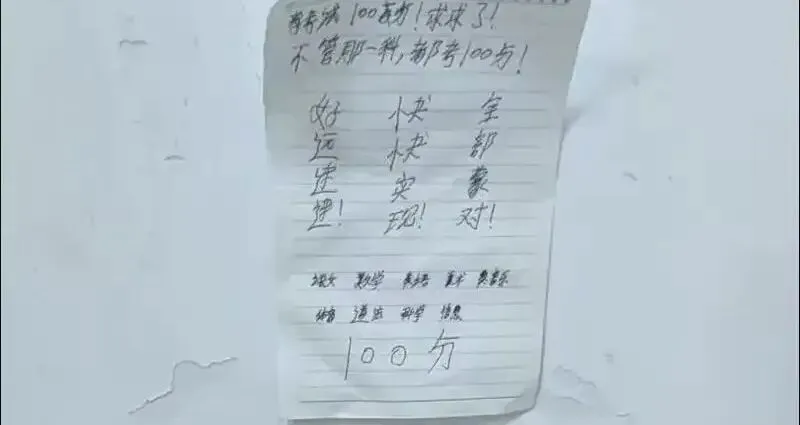 考100分！求求了！
不管那一科，都考100分！
好运连连！
快快实现！
全部蒙对！
语文 数学 英语 美术 音乐
体育 道法 科学 信息
100分